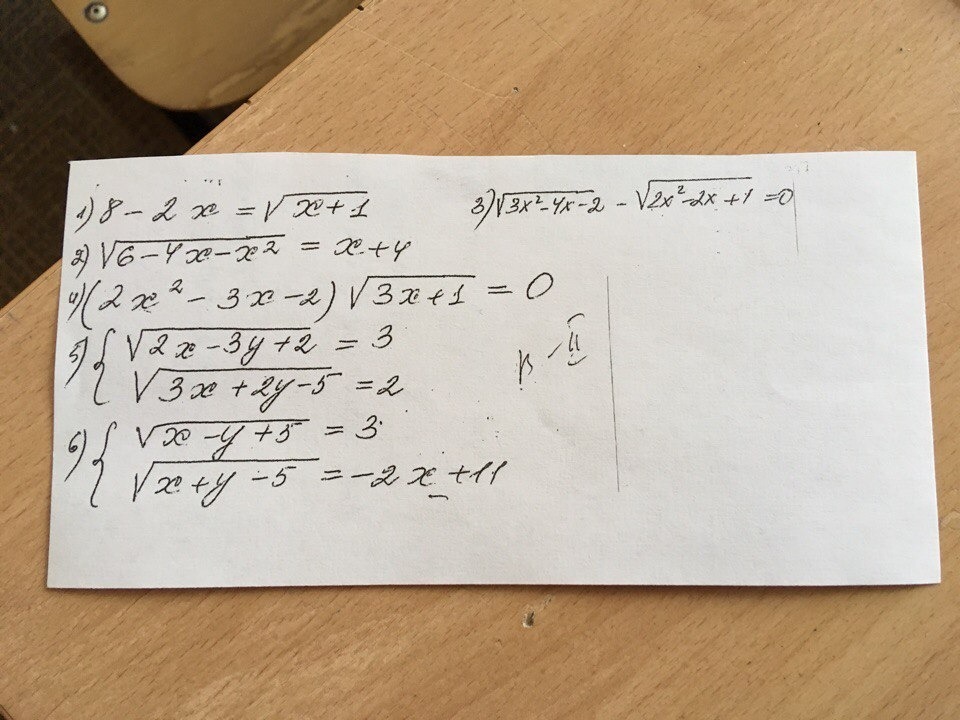 1) 8 - 2x = √(x+1)
3) √(3x²-4x-2) - √(2x²-2x+1) = 0
2) √(6-4x-x²) = x+4
4) (2x² - 3x - 2) √(3x+1) = 0
5) { √(2x-3y+2) = 3
√(3x+2y-5) = 2
в - II
6) { √(x-y+5) = 3
√(x+y-5) = -2x+11